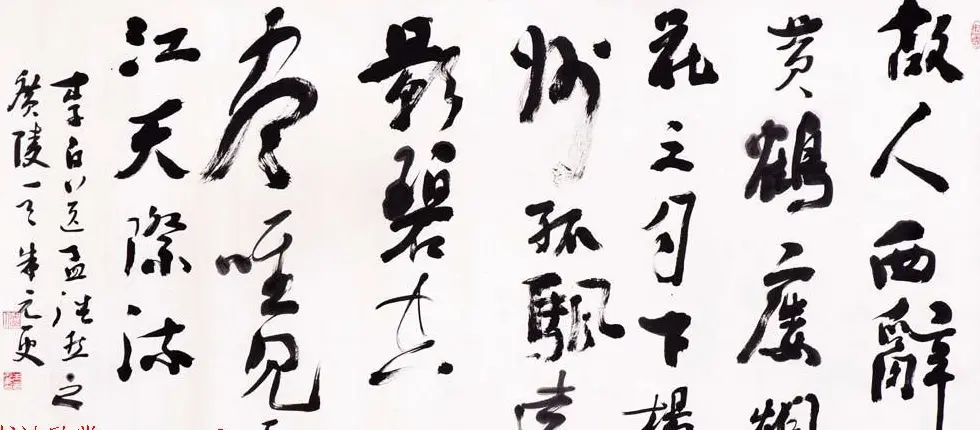 故人西辭
黄鶴廔
花三月下楊
州孤颿
影碧空
盡唯見
江天際流
李白送孟浩然之
廣陵一首朱元更